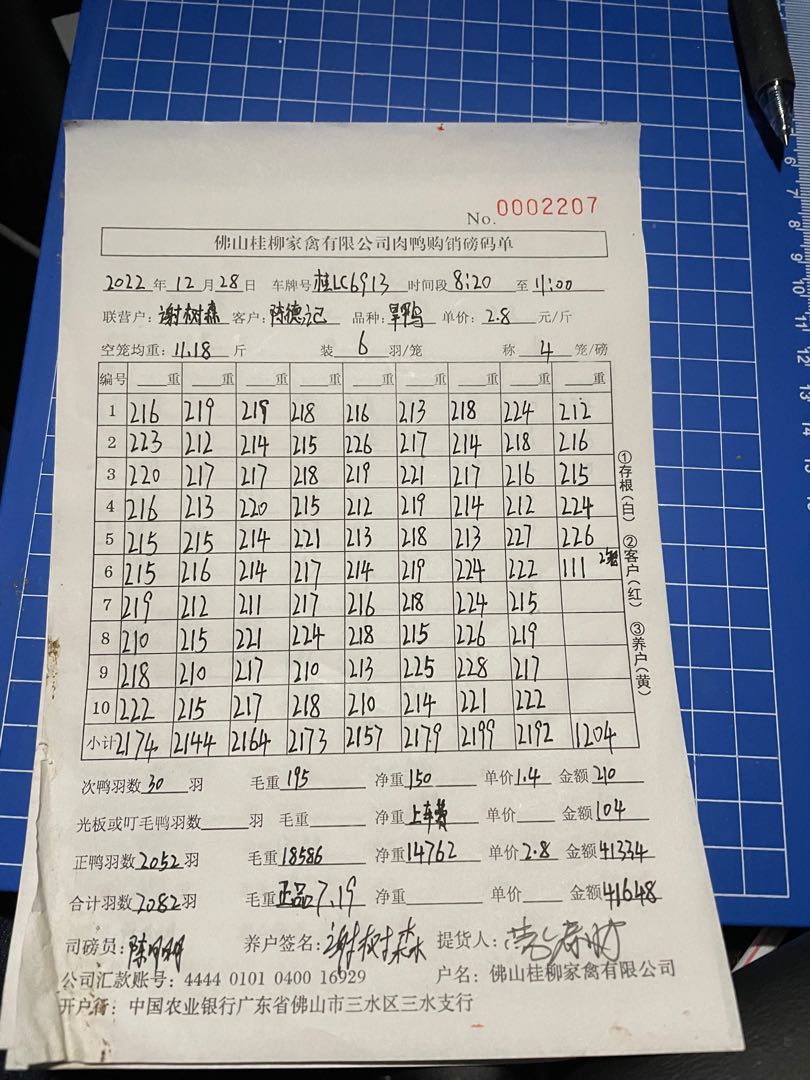 No. 0002207
佛山桂柳家禽有限公司肉鸭购销磅码单
2022年12月28日 车牌号桂LC6913 时间段8:20至11:00
联营户:谢树森 客户:陈德记 品种: 单价:2.8元/斤
空笼均重:11.18斤 装6羽/笼 称4笼/磅
编号 重 重 重 重 重 重 重 重 重
1 216 219 219 218 216 213 218 224 212
2 223 212 214 215 226 217 214 218 216
3 220 217 217 218 219 221 217 216 215
4 216 213 220 215 212 219 214 212 224
5 215 215 214 221 213 218 213 227 226
6 215 216 214 217 214 219 224 222 111
7 219 212 211 217 216 218 224 215
8 210 215 221 224 218 215 226 219
9 218 210 217 210 213 225 228 217
10 222 215 217 218 210 214 221 222
小计 2174 2144 2164 2173 2157 2179 2199 2192 1204
次鸭羽数30羽 毛重195 净重150 单价1.4 金额210
光板或叮毛鸭羽数 羽 毛重 净重上车费 单价 金额104
正鸭羽数2052羽 毛重18586 净重14762 单价2.8 金额41334
合计羽数2082羽 毛重正品7.19 净重 单价 金额41648
司磅员: 养户签名:谢树森 提货人:
公司汇款账号:4444 0101 0400 16929 户名:佛山桂柳家禽有限公司
开户行:中国农业银行广东省佛山市三水区三水支行
①存根(白) ②客户(红) ③养户(黄)
6
7
8
9
10
11
12
13
14
15